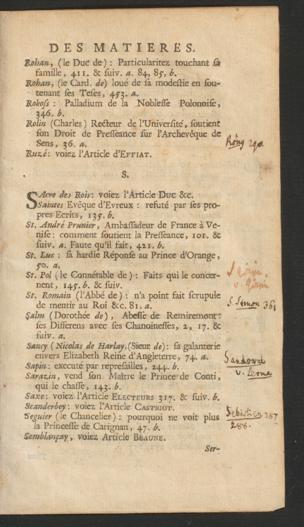 DES MATIERES.
Rohan, (le Duc de): Particularitez touchant sa
famille, 411. & suiv. a. 84, 85. b.
Rohan, (le Card. de) loué de sa modestie en sou-
tenant ses Teses, 453. a.
Rokoss: Palladium de la Noblesse Polonoise,
346. b.
Rolin (Charles) Recteur de l'Université, soutient
son Droit de Presseance sur l'Archevêque de
Sens, 36. a.
Ruzé: voiez l'Article d'EFFIAT.
S.
SAcre des Rois: voiez l'Article Duc &c.
Saintes Evêque d'Evreux: refuté par ses pro-
pres Ecrits, 135. b.
St. André Prunier, Ambassadeur de France à Ve-
nise: comment soutient la Presseance, 101. &
suiv. a. Faute qu'il fait, 421. b.
St. Luc: sa hardie Réponse au Prince d'Orange,
50. a.
St. Pol (le Connétable de): Faits qui le concer-
nent, 145. b. & suiv.
St. Romain (l'Abbé de): n'a point fait scrupule
de mentir au Roi &c. 81. a.
Salm (Dorothée de), Abesse de Remiremont:
ses Differens avec ses Chanoinesses, 2, 17. &
suiv. a.
Sancy (Nicolas de Harlay, Sieur de): sa galanterie
envers Elizabeth Reine d'Angleterre, 74. a.
Sapin: executé par represailles, 244. b.
Sarazin, vend son Maître le Prince de Conti,
qui le chasse, 143. b.
Saxe: voiez l'Article ELECTEURS 317. & suiv. b.
Scanderbey: voiez l'Article CASTRIOT.
Seguier (le Chancelier): pourquoi ne voit plus
la Princesse de Carignan, 47. b.
Semblançay, voiez Article BEAUNE.
Ser-
S. Simon 361
Sebastien 287
286.